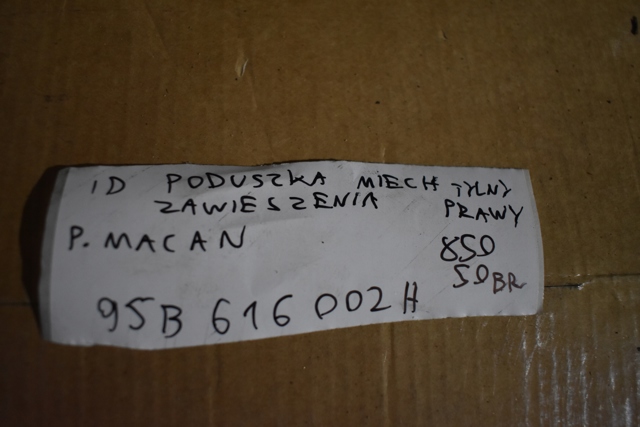 ID PODUSZKA MIECH TYLNY
ZAWIESZENIA PRAWY
P. MACAN 850
50BR
95B 616 002H